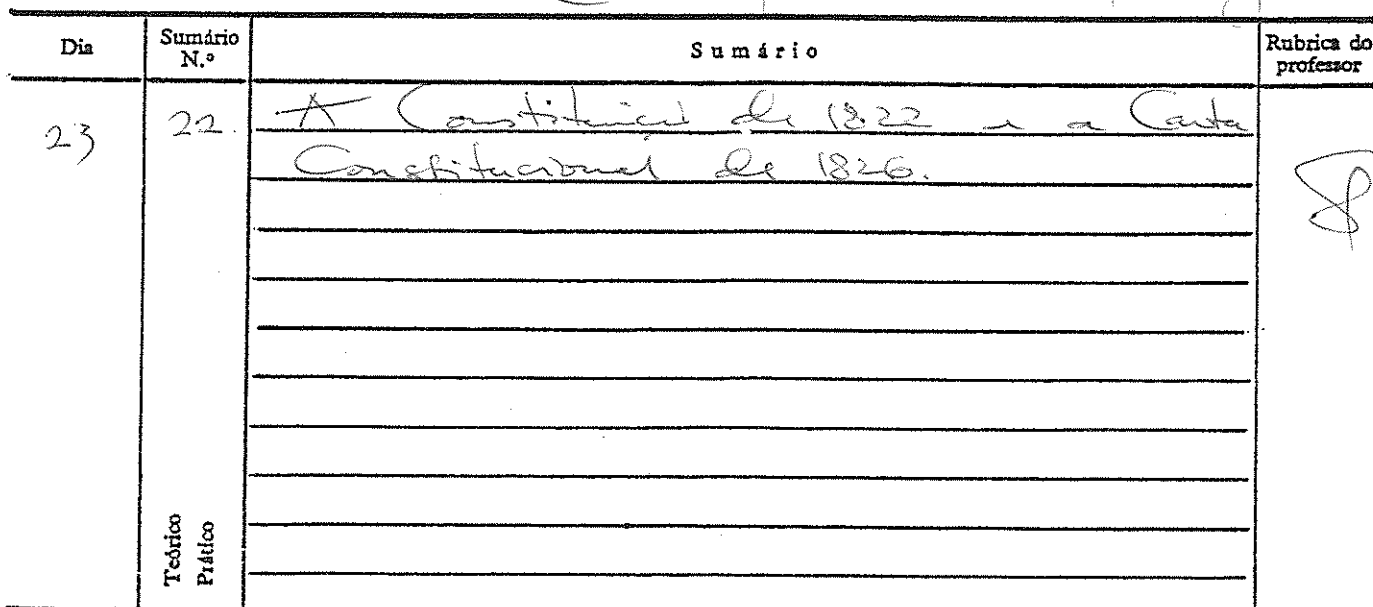 Dia
Sumário N.º
Sumário
Rubrica do professor
23
22.
A Constituição de 1822 e a Carta
Constitucional de 1826.
Teórico
Prático